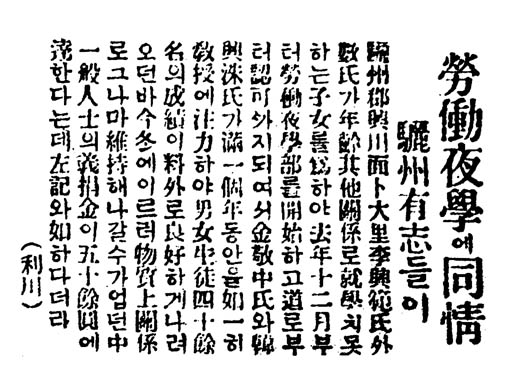 勞働夜學에同情
驪州有志들이
驪州郡興川面卜大里李興範氏外
數氏가年齡其他關係로就學치못
하는子女를爲하야去年十二月부
터勞働夜學部를開始하고道로부
터認可까지되여서金敬中氏와韓
興洙氏가滿一個年동안을如一히
敎授에注力하야男女生徒四十餘
名의成績이料外로良好하게나려
오던바今冬에이르러物質上關係
로그나마維持해나갈수가업던中
一般人士의義捐金이五十餘圓에
達한다는데左記와如하다더라
(利川)